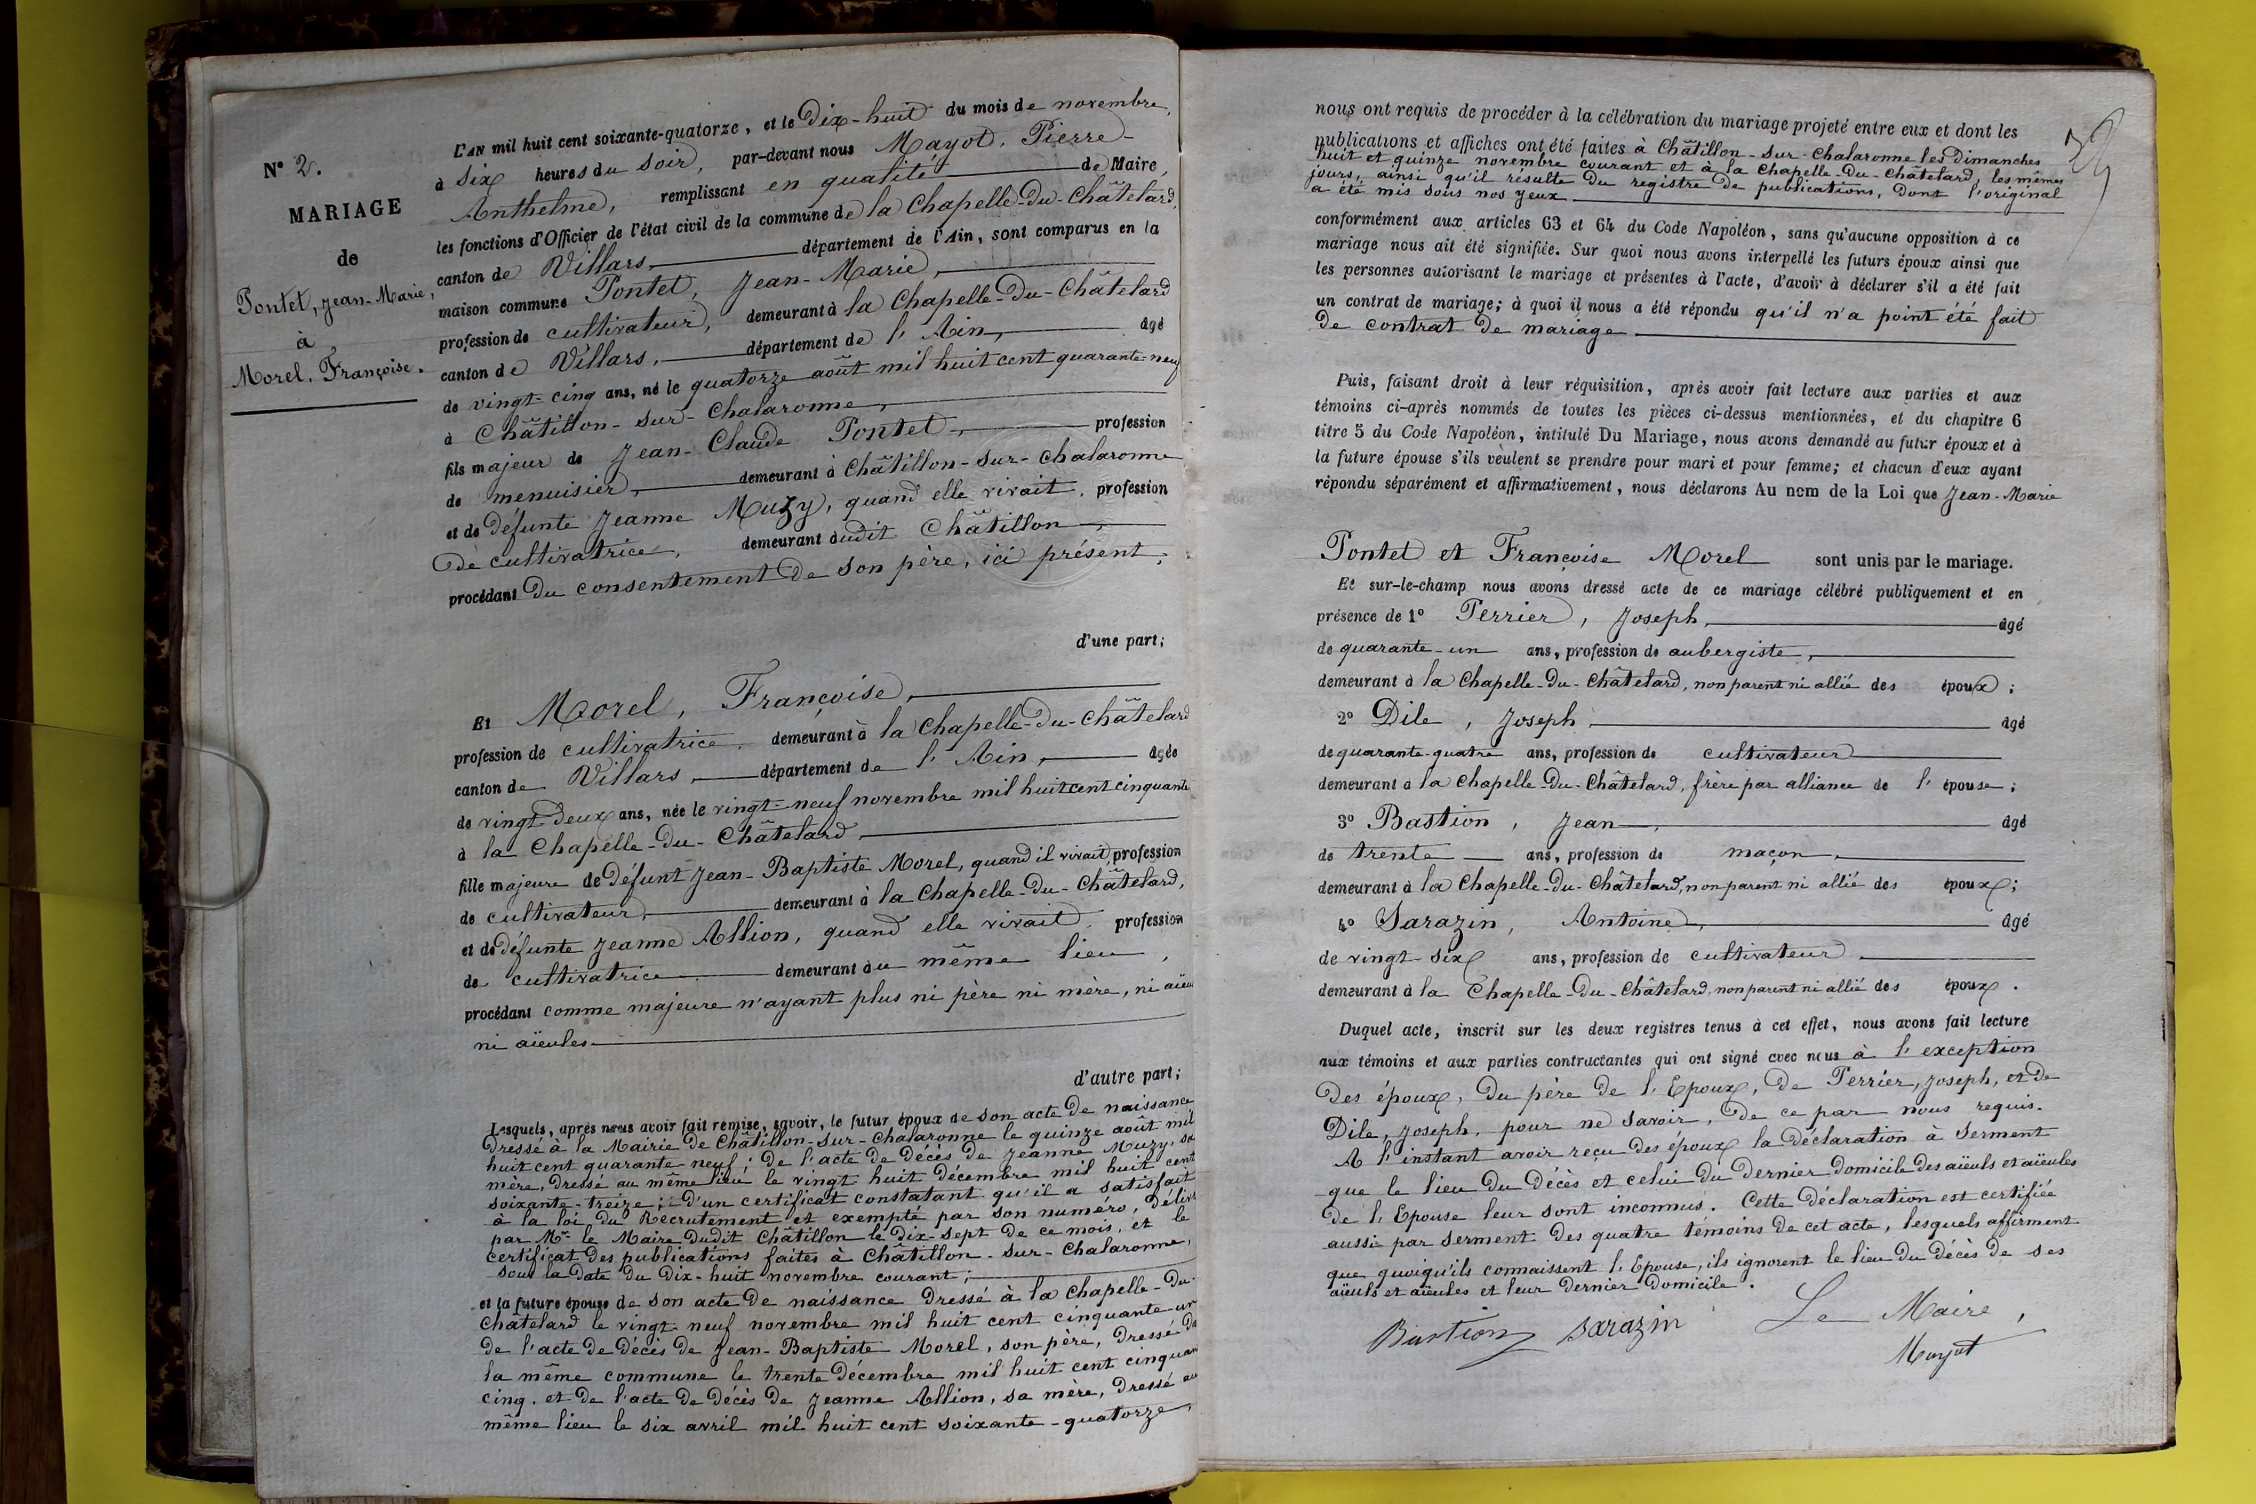 N° 2.
MARIAGE
de
Pontet, Jean-Marie,
à
Morel, Françoise.
L'AN mil huit cent soixante-quatorze, et le Dix-huit du mois de novembre,
à six heures du soir, par-devant nous Mayot, Pierre-
Anthelme, remplissant en qualité de Maire,
les fonctions d'Officier de l'état civil de la commune de la Chapelle-du-Châtelard,
canton de Villars, département de l'Ain, sont comparus en la
maison commune Pontet, Jean-Marie,
profession de cultivateur, demeurant à la Chapelle-du-Châtelard
canton de Villars, département de l'Ain, âgé
de vingt-cinq ans, né le quatorze août mil huit cent quarante-neuf
à Châtillon-sur-Chalaronne,
fils majeur de Jean-Claude Pontet, profession
de menuisier, demeurant à Châtillon-sur-Chalaronne
et de défunte Jeanne Muzy, quand elle vivait, profession
de cultivatrice, demeurant audit Châtillon,
procédant du consentement de son père, ici présent,
d'une part;
Et Morel, Françoise,
profession de cultivatrice, demeurant à la Chapelle-du-Châtelard
canton de Villars, département de l'Ain, âgée
de vingt-deux ans, née le vingt-neuf novembre mil huit cent cinquante
à la Chapelle-du-Châtelard,
fille majeure de défunt Jean-Baptiste Morel, quand il vivait, profession
de cultivateur, demeurant à la Chapelle-du-Châtelard,
et de défunte Jeanne Allion, quand elle vivait, profession
de cultivatrice demeurant au même lieu,
procédant comme majeure n'ayant plus ni père ni mère, ni aïeuls
ni aïeules
d'autre part;
Lesquels, après nous avoir fait remise, savoir, le futur époux de son acte de naissance
dressé à la Mairie de Châtillon-sur-Chalaronne le quinze août mil
huit cent quarante neuf; de l'acte de décès de Jeanne Muzy, sa
mère, dressé au même lieu le vingt huit décembre mil huit cent
soixante-treize; d'un certificat constatant qu'il a satisfait
à la loi du Recrutement et exempté par son numéro, délivré
par Mr le Maire dudit Châtillon le dix-sept de ce mois, et le
certificat des publications faites à Châtillon-sur-Chalaronne,
sous la date du dix-huit novembre courant;
et la future épouse de son acte de naissance dressé à la Chapelle-du-
Châtelard le vingt-neuf novembre mil huit cent cinquante-un
de l'acte de décès de Jean-Baptiste Morel, son père, dressé da
la même commune le trente décembre mil huit cent cinquan
cinq, et de l'acte de décès de Jeanne Allion, sa mère, dressé au
même lieu le six avril mil huit cent soixante-quatorze,
nous ont requis de procéder à la célébration du mariage projeté entre eux et dont les
publications et affiches ont été faites à Châtillon-sur-Chalaronne les dimanches
huit et quinze novembre courant et à la Chapelle-du-Châtelard, les mêmes
jours, ainsi qu'il résulte du registre de publications, dont l'original
a été mis sous nos yeux
conformément aux articles 63 et 64 du Code Napoléon, sans qu'aucune opposition à ce
mariage nous ait été signifiée. Sur quoi nous avons interpellé les futurs époux ainsi que
les personnes autorisant le mariage et présentes à l'acte, d'avoir à déclarer s'il a été fait
un contrat de mariage; à quoi il nous a été répondu qu'il n'a point été fait
de contrat de mariage
Puis, faisant droit à leur réquisition, après avoir fait lecture aux parties et aux
témoins ci-après nommés de toutes les pièces ci-dessus mentionnées, et du chapitre 6
titre 5 du Code Napoléon, intitulé Du Mariage, nous avons demandé au futur époux et à
la future épouse s'ils veulent se prendre pour mari et pour femme; et chacun d'eux ayant
répondu séparément et affirmativement, nous déclarons Au nom de la Loi que Jean-Marie
Pontet et Françoise Morel sont unis par le mariage.
Et sur-le-champ nous avons dressé acte de ce mariage célébré publiquement et en
présence de 1° Perrier, Joseph, âgé
de quarante-un ans, profession de aubergiste,
demeurant à la Chapelle-du-Châtelard, non parent ni allié des époux;
2° Dile, Joseph âgé
de quarante-quatre ans, profession de cultivateur
demeurant à la Chapelle-du-Châtelard, frère par alliance de l'épouse;
3° Bastion, Jean, âgé
de trente ans, profession de maçon,
demeurant à la Chapelle-du-Châtelard, non parent ni allié des époux;
4° Sarazin, Antoine, âgé
de vingt-six ans, profession de cultivateur
demeurant à la Chapelle-du-Châtelard, non parent ni allié des époux.
Duquel acte, inscrit sur les deux registres tenus à cet effet, nous avons fait lecture
aux témoins et aux parties contractantes qui ont signé avec nous à l'exception
des époux, du père de l'Epoux, de Perrier, Joseph, et de
Dile, Joseph, pour ne savoir, de ce par nous requis.
A l'instant avoir reçu des époux la déclaration à serment
que le lieu du décès et celui du dernier domicile des aïeuls et aïeules
de l'Epouse leur sont inconnus. Cette déclaration est certifiée
aussi par serment des quatre témoins de cet acte, lesquels affirment
que quoiqu'ils connaissent l'Epouse, ils ignorent le lieu du décès de ses
aïeuls et aïeules et leur dernier domicile.
Bastion sarazin Le Maire,
Mayot